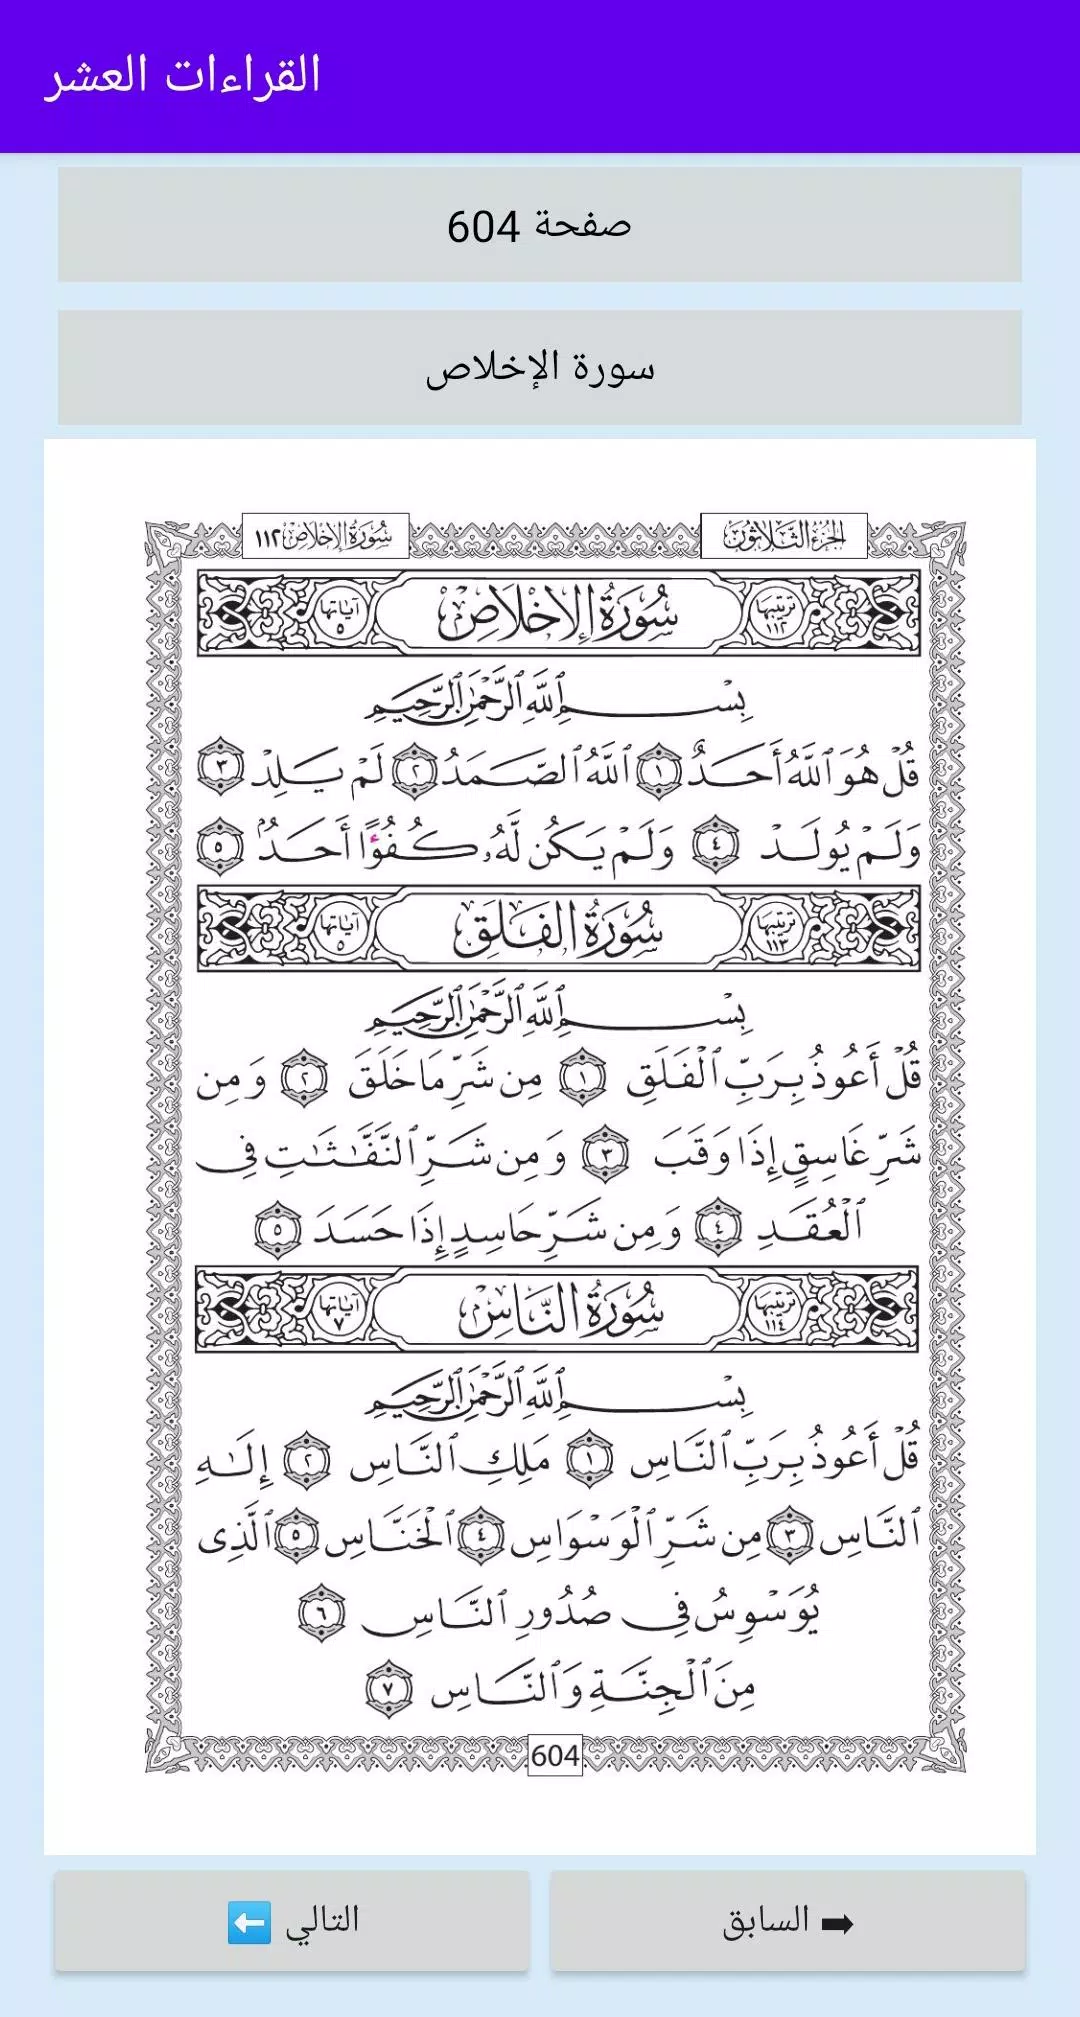 القراءات العشر
صفحة 604
سورة الإخلاص
الجزء الثلاثون
سورة الإخلاص ١١٢
ترتيبها ١١٢ سُورَةُ الإِخْلَاصِ آياتها ٥
بِسْمِ ٱللَّهِ ٱلرَّحْمَٰنِ ٱلرَّحِيمِ
قُلْ هُوَ ٱللَّهُ أَحَدٌ ١ ٱللَّهُ ٱلصَّمَدُ ٢ لَمْ يَلِدْ ٣
وَلَمْ يُولَدْ ٤ وَلَمْ يَكُن لَّهُۥ كُفُؤًا أَحَدٌۢ ٥
ترتيبها ١١٣ سُورَةُ الفَلَقِ آياتها ٥
بِسْمِ ٱللَّهِ ٱلرَّحْمَٰنِ ٱلرَّحِيمِ
قُلْ أَعُوذُ بِرَبِّ ٱلْفَلَقِ ١ مِن شَرِّ مَا خَلَقَ ٢ وَمِن
شَرِّ غَاسِقٍ إِذَا وَقَبَ ٣ وَمِن شَرِّ ٱلنَّفَّٰثَٰتِ فِى
ٱلْعُقَدِ ٤ وَمِن شَرِّ حَاسِدٍ إِذَا حَسَدَ ٥
ترتيبها ١١٤ سُورَةُ النَّاسِ آياتها ٧
بِسْمِ ٱللَّهِ ٱلرَّحْمَٰنِ ٱلرَّحِيمِ
قُلْ أَعُوذُ بِرَبِّ ٱلنَّاسِ ١ مَلِكِ ٱلنَّاسِ ٢ إِلَٰهِ
ٱلنَّاسِ ٣ مِن شَرِّ ٱلْوَسْوَاسِ ٤ ٱلْخَنَّاسِ ٥ ٱلَّذِى
يُوَسْوِسُ فِى صُدُورِ ٱلنَّاسِ ٦
مِنَ ٱلْجِنَّةِ وَٱلنَّاسِ ٧
604
➡ السابق
التالي ⬅